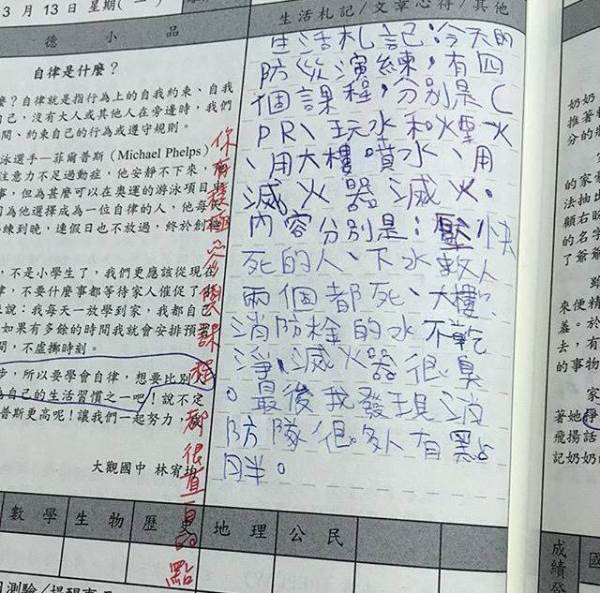 3 月 13 日 星期(一)
德 小 品
自律是什麼?
麼?自律就是指行為上的自我約束、自我
自己,沒有大人或其他人在旁邊時,我們
間、約束自己的行為或遵守規則。
泳選手—菲爾普斯(Michael Phelps)
注意力不足過動症,他安靜不下來,
事,但為甚麼可以在奧運的游泳項目
因為他選擇成為一位自律的人,他每
練到晚,連假日也不放過,終於創
,不是小學生了,我們更應該從現在
律,不要什麼事都等待家人催促了
來說:我每天一放學到家,我都自己
如果有多餘的時間我就會安排預
間,不虛擲時刻。
步,所以要學會自律,想要比別人
為自己的生活習慣之一吧!說不定
普斯更高呢!讓我們一起努力,
大觀國中 林宥
數學 生物 歷史 地理 公民
測驗/提醒事
你有
課程都很直
點
生活札記/文章心得/其他
生活札記:今天的
防災演練,有四
個課程,分別是C
PR、玩水和煙火
、用大樓噴水、用
滅火器滅火。
內容分別是:壓快
死的人、下水救人
兩個都死、大樓
消防栓的水不乾
淨、滅火器很臭
。最後我發現消
防隊很多人有點
胖。
奶奶
推著
分的
的家
法抽出
顧右盼
的名字
了爺爺
來便精
羞。於
去,有
的事物
家
著她掙
飛揚話
記奶奶
國
成績登